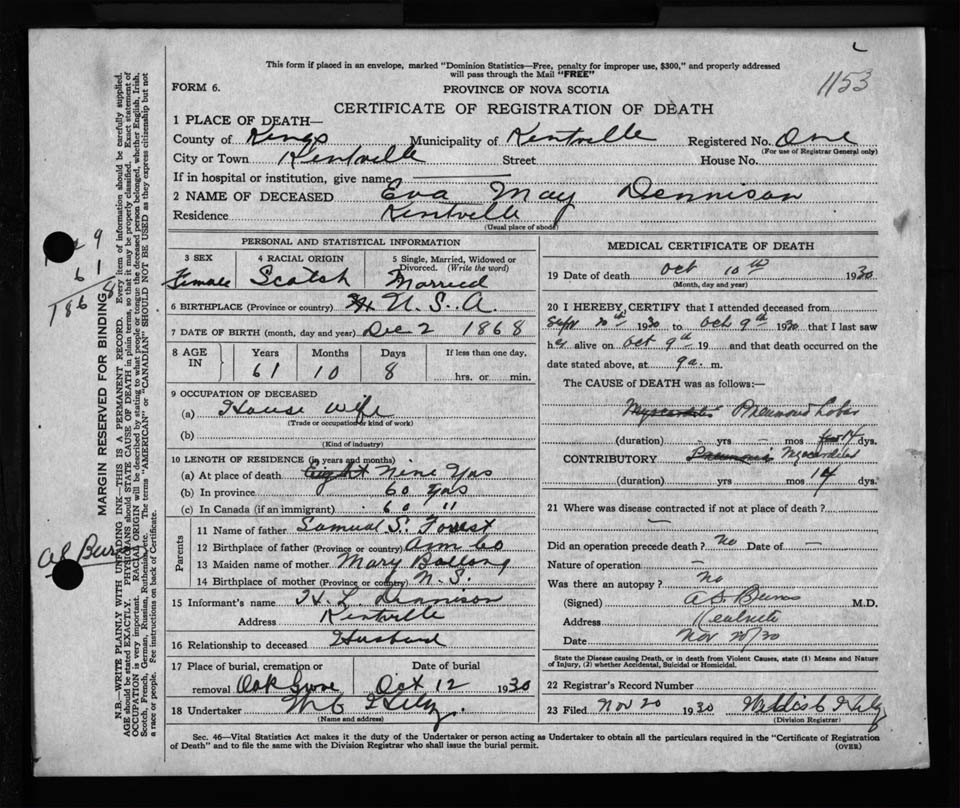 1153
This form if placed in an envelope, marked "Dominion Statistics—Free, penalty for improper use, $300," and properly addressed
will pass through the Mail "FREE"
FORM 6.
PROVINCE OF NOVA SCOTIA
CERTIFICATE OF REGISTRATION OF DEATH
1 PLACE OF DEATH—
County of Kings Municipality of Kentville Registered No. One
(For use of Registrar General only)
City or Town Kentville Street House No.
If in hospital or institution, give name
2 NAME OF DECEASED Eva May Dennison
Residence Kentville
(Usual place of abode)
PERSONAL AND STATISTICAL INFORMATION
3 SEX 4 RACIAL ORIGIN 5 Single, Married, Widowed or Divorced. (Write the word)
Female Scotch Married
6 BIRTHPLACE (Province or country) U.S.A.
7 DATE OF BIRTH (month, day and year) Dec 2 1868
8 AGE IN Years Months Days If less than one day.
61 10 8 hrs. or min.
9 OCCUPATION OF DECEASED
(a) House wife
(Trade or occupation or kind of work)
(b)
(Kind of industry)
10 LENGTH OF RESIDENCE (in years and months)
(a) At place of death Eight Nine Yrs
(b) In province 60 Yrs
(c) In Canada (if an immigrant) 60 "
Parents
11 Name of father Samuel S. Forest
12 Birthplace of father (Province or country)
13 Maiden name of mother Mary
14 Birthplace of mother (Province or country) N.S.
15 Informant's name H. L. Dennison
Address Kentville
16 Relationship to deceased Husband
17 Place of burial, cremation or removal Date of burial
Oak Grove Oct 12 1930
18 Undertaker W C
(Name and address)
MEDICAL CERTIFICATE OF DEATH
19 Date of death Oct 10th 1930
(Month, day and year)
20 I HEREBY CERTIFY that I attended deceased from
Sept 1930 to Oct 9th 1930 that I last saw
her alive on Oct 9th 19 and that death occurred on the
date stated above, at 9 a. m.
The CAUSE of DEATH was as follows:—
Pneumonia Lobar
(duration) - yrs - mos 14 dys.
CONTRIBUTORY Pneumonia Myocarditis
(duration) yrs mos 14 dys.
21 Where was disease contracted if not at place of death?
—
Did an operation precede death? No Date of —
Nature of operation —
Was there an autopsy? No
(Signed) A S Burns M.D.
Address Kentville
Date Nov 20/30
State the Disease causing Death, or in death from Violent Causes, state (1) Means and Nature
of Injury, (2) whether Accidental, Suicidal or Homicidal.
22 Registrar's Record Number
23 Filed Nov 20 1930
(Division Registrar)
Sec. 46—Vital Statistics Act makes it the duty of the Undertaker or person acting as Undertaker to obtain all the particulars required in the "Certificate of Registration
of Death" and to file the same with the Division Registrar who shall issue the burial permit.
(OVER)
MARGIN RESERVED FOR BINDING
N.B.—WRITE PLAINLY WITH UNFADING INK—THIS IS A PERMANENT RECORD. Every item of information should be carefully supplied.
AGE should be stated EXACTLY. PHYSICIANS should STATE CAUSE OF DEATH in plain terms, so that it may be properly classified. Exact statement of
OCCUPATION is very important. RACIAL ORIGIN will be described by stating to what people or tongue the deceased person belonged, whether English, Irish,
Scotch, French, German, Russian, Ruthenian, etc. The terms "AMERICAN" or "CANADIAN" SHOULD NOT BE USED as they express citizenship but not
a race or people. See instructions on back of Certificate.
9
61
1868